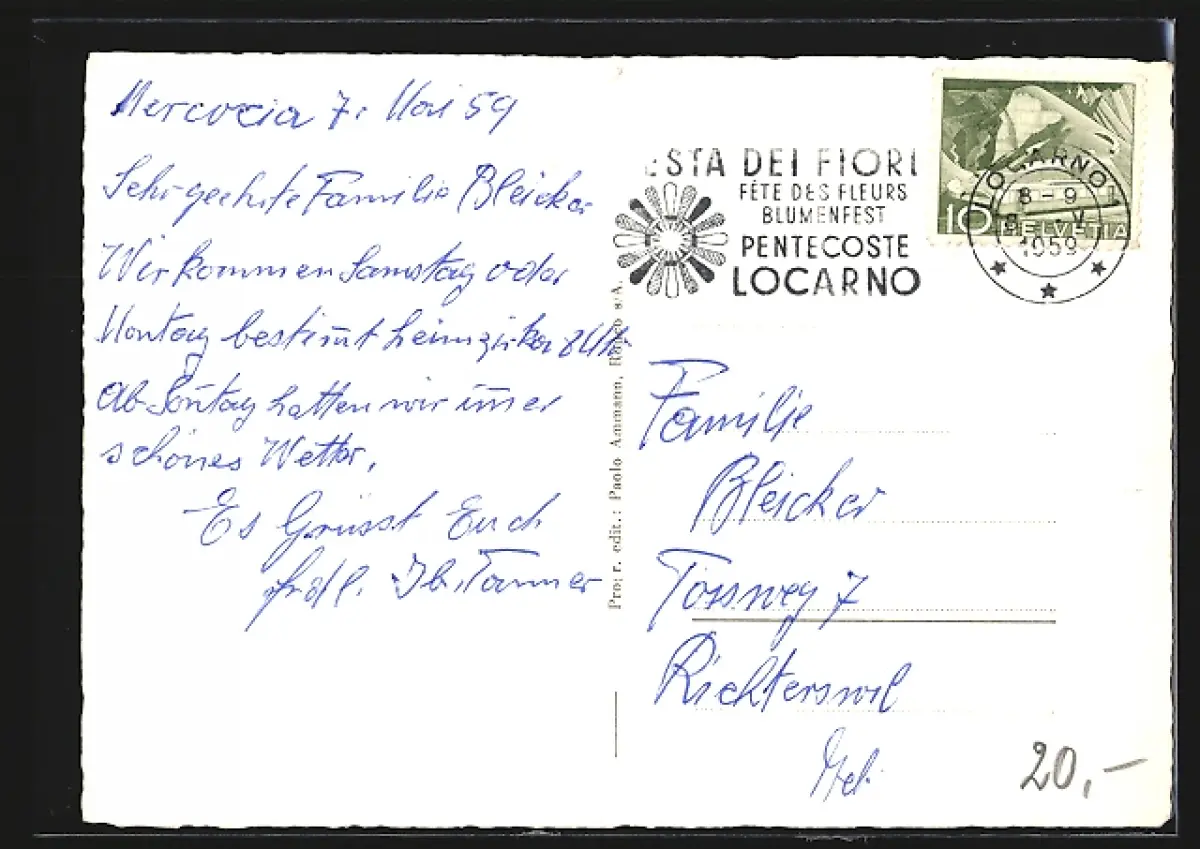 Mercocia 7. Mai 59
Sehr geehrte Familie Bleicker
Wir kommen Samstag oder
Montag bestimt heim zirka 8 Uhr
Ab Sontag hatten wir imer
schönes Wetter.
Es Grüsst Euch
frdl. Tanner
ESTA DEI FIORI
FÊTE DES FLEURS
BLUMENFEST
PENTECOSTE
LOCARNO
LOCARNO 1
8-9
8. V.
1959
10 HELVETIA
Pro; r. edit.: Paolo Ammann, s/A.
Familie
Bleicker
Tössweg 7
Richterswil
20,-